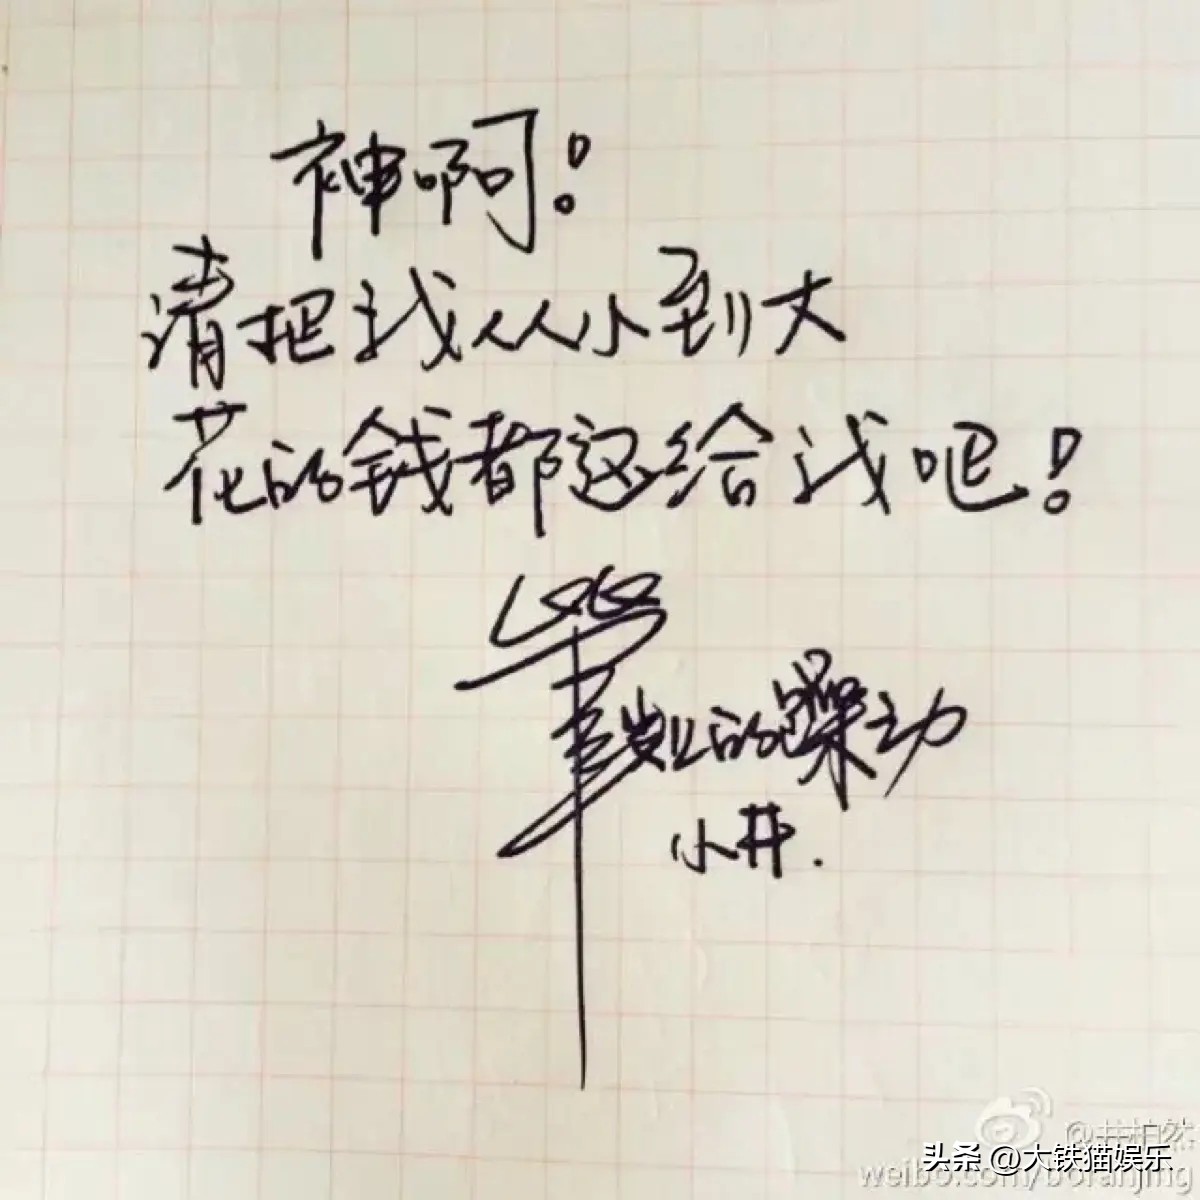 神啊!
请把我从小到大
花的钱都还给我吧!
的躁动
小井.
@井柏然
头条 @大铁猫娱乐
weibo.com/boranjing